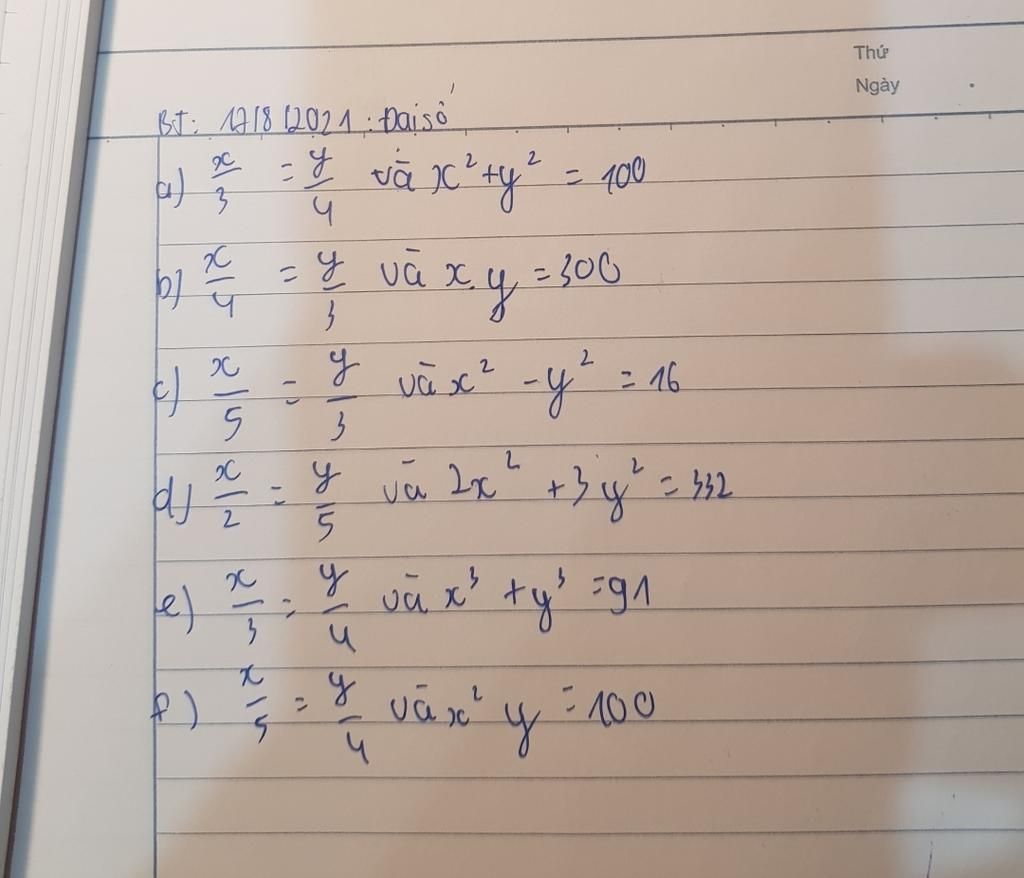 Thứ
Ngày
BT: 17/8/2021: Đại số
a) x/3 = y/4 và x² + y² = 100
b) x/4 = y/3 và x.y = 300
c) x/5 = y/3 và x² - y² = 16
d) x/2 = y/5 và 2x² + 3y² = 332
e) x/3 = y/4 và x³ + y³ = 91
f) x/5 = y/4 và x² y = 100